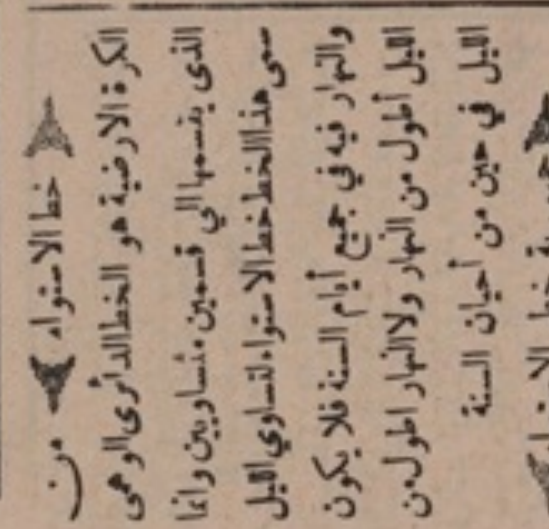 خط الاستواء من
الكرة الارضية هو الخط الدائرى الوهمى
الذى يقسمها الي قسمين متساويين وانما
سمى هذا الخط خط الاستواء لتساوي الليل
والنهار فيه في جميع أيام السنة فلا يكون
الليل أطول من النهار ولا النهار اطول من
الليل في حين من أحيان السنة
خط الا